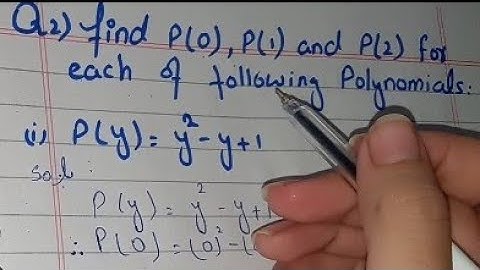 Q2) find P(0), P(1) and P(2) for
each of following Polynomials:
(i) P(y) = y² - y + 1
Sol:
P(y) = y² - y + 1
∴ P(0) = (0)² - (